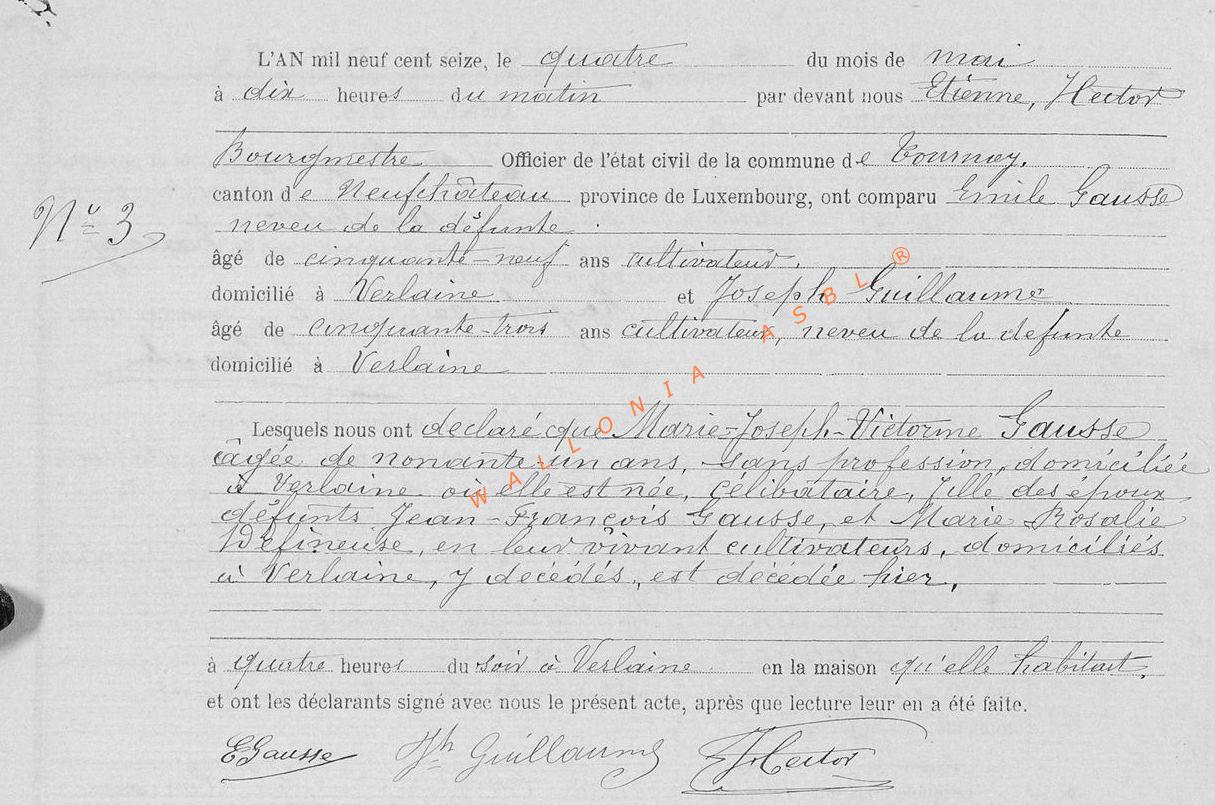 L'AN mil neuf cent seize, le quatre du mois de mai
à dix heures du matin par devant nous Etienne, Hector
Bourgmestre Officier de l'état civil de la commune de Tournay.
canton de Neufchâteau province de Luxembourg, ont comparu Emile Gausse
neveu de la défunte
Nº 3
âgé de cinquante-neuf ans cultivateur,
domicilié à Verlaine et Joseph Guillaume
âgé de cinquante-trois ans cultivateur, neveu de la defunte
domicilié à Verlaine
Lesquels nous ont declaré que Marie-Joseph-Victorine Gausse
âgée de nonante un ans, sans profession, domiciliée
à Verlaine où elle est née, célibataire, fille des époux
défunts Jean-François Gausse, et Marie Rosalie
Défineuse, en leur vivant cultivateurs, domiciliés
à Verlaine, y décédés, est décédée hier,
à quatre heures du soir à Verlaine en la maison qu'elle habitait,
et ont les déclarants signé avec nous le présent acte, après que lecture leur en a été faite.
EGausse Jph Guillaume E Hector
WALLONIA ASBL ®